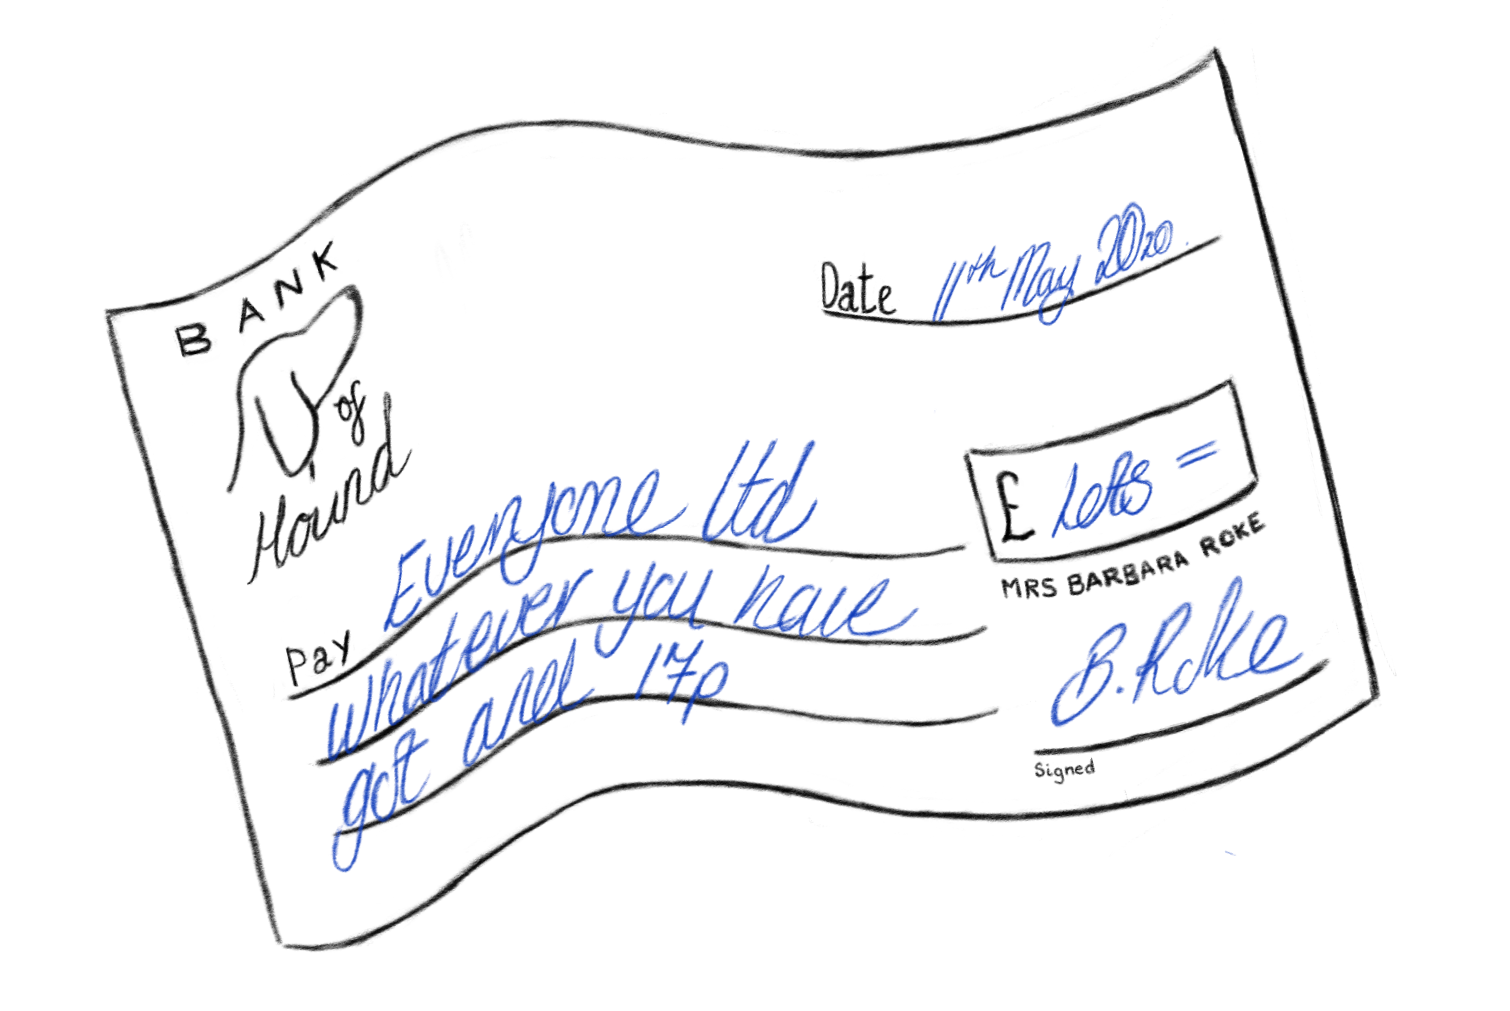 BANK
of
Hound
Date 11th May 2020
Pay Everyone ltd
whatever you have
got and 17p
£ Lots =
MRS BARBARA ROKE
B. Roke
Signed